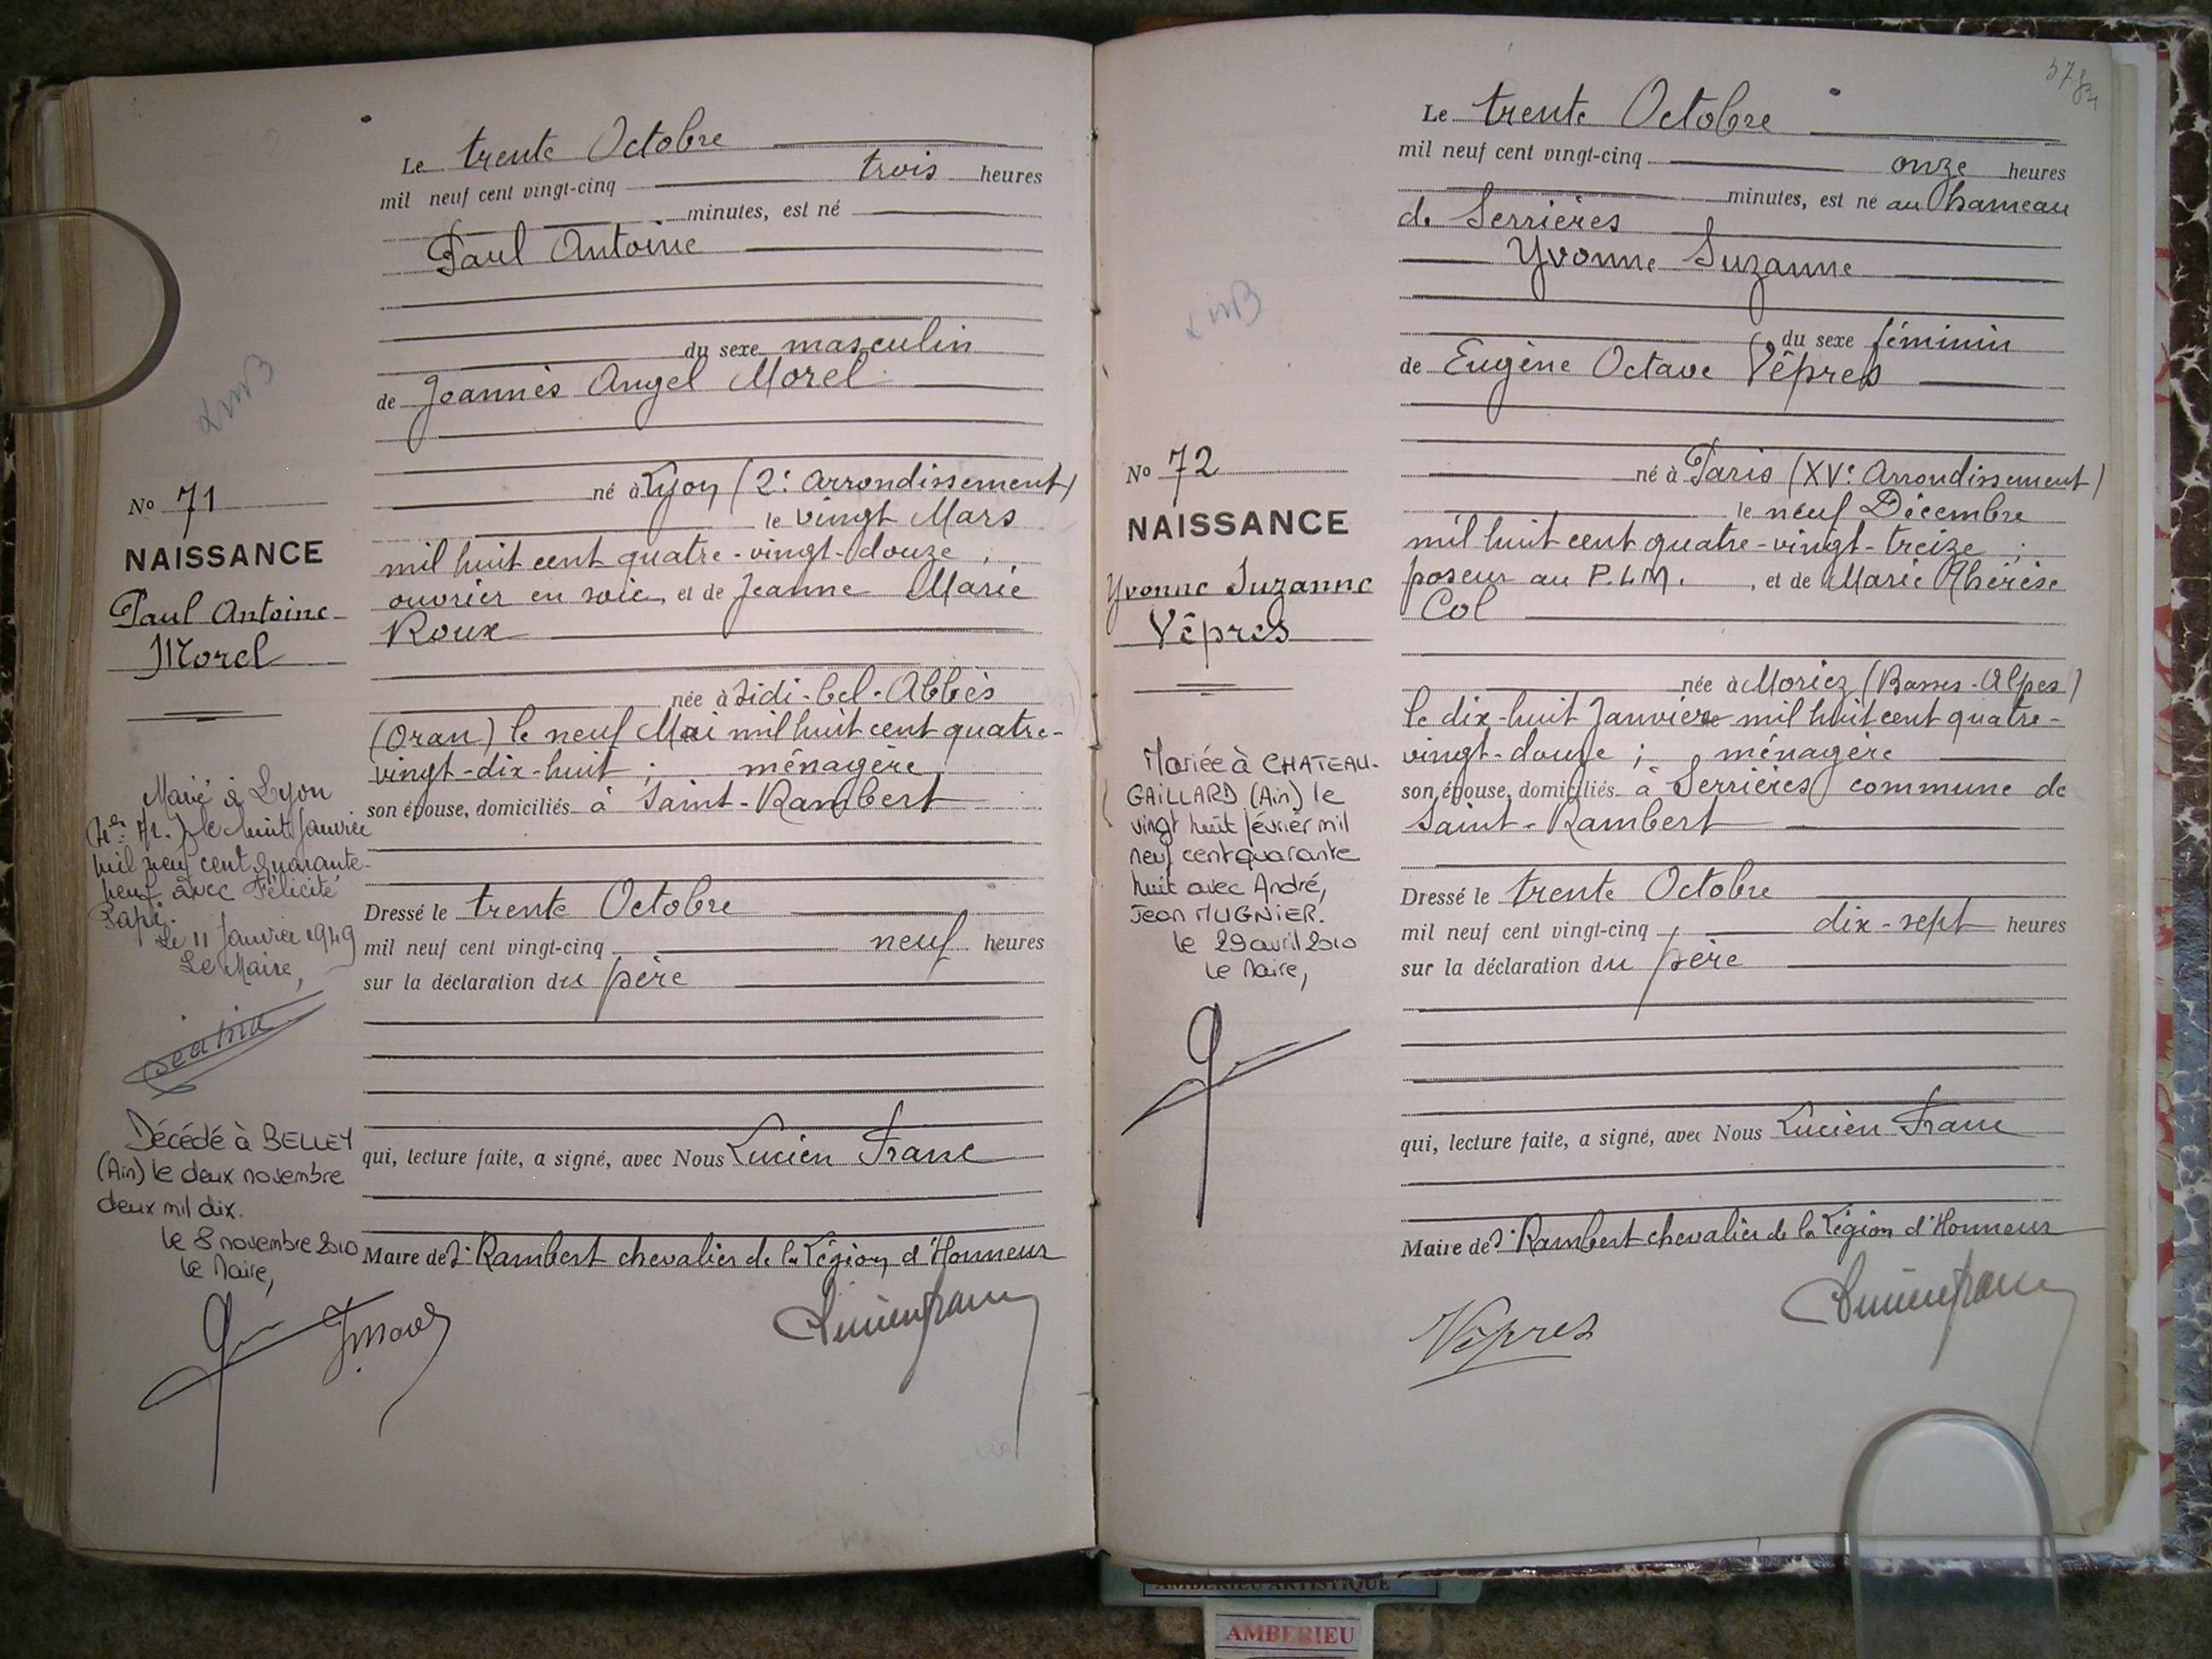 Le trente Octobre
mil neuf cent vingt-cinq trois heures
minutes, est né
Paul Antoine
du sexe masculin
de Joannès Angel Morel
né à Lyon (2e arrondissement)
le vingt Mars
mil huit cent quatre-vingt-douze,
ouvrier en soie, et de Jeanne Marie
Roux
née à Sidi-bel-Abbès
(Oran) le neuf Mai mil huit cent quatre-
vingt-dix-huit ; ménagère
son épouse, domiciliés à Saint-Rambert
Dressé le trente Octobre
mil neuf cent vingt-cinq neuf heures
sur la déclaration du père
qui, lecture faite, a signé, avec Nous Lucien Franc
Maire de St Rambert chevalier de la Légion d'Honneur
No 71
NAISSANCE
Paul Antoine
Morel
Marié à Lyon
le huit Janvier
mil neuf cent quarante-
neuf avec Félicité
Papi.
Le 11 Janvier 1949
Le Maire,
Décédé à BELLEY
(Ain) le deux novembre
deux mil dix.
le 8 novembre 2010
le Maire,
37
Le trente Octobre
mil neuf cent vingt-cinq onze heures
minutes, est né au hameau
de Serrières
Yvonne Suzanne
du sexe féminin
de Eugène Octave Vêpres
né à Paris (XVe Arrondissement)
le neuf Décembre
mil huit cent quatre-vingt-treize ;
poseur au P.L.M. , et de Marie Thérèse
Col
née à Moriez (Basses-Alpes)
le dix-huit Janvier mil huit cent quatre-
vingt-douze ; ménagère
son épouse, domiciliés à Serrières commune de
Saint-Rambert
Dressé le trente Octobre
mil neuf cent vingt-cinq dix-sept heures
sur la déclaration du père
qui, lecture faite, a signé, avec Nous Lucien Franc
Maire de St Rambert chevalier de la Légion d'Honneur
Vêpres
No 72
NAISSANCE
Yvonne Suzanne
Vêpres
Mariée à CHATEAU-
GAILLARD (Ain) le
vingt huit février mil
neuf cent quarante
huit avec André,
Jean MUGNIER.
le 29 avril 2010
le Maire,
AMBERIEU ARTISTIQUE
AMBERIEU